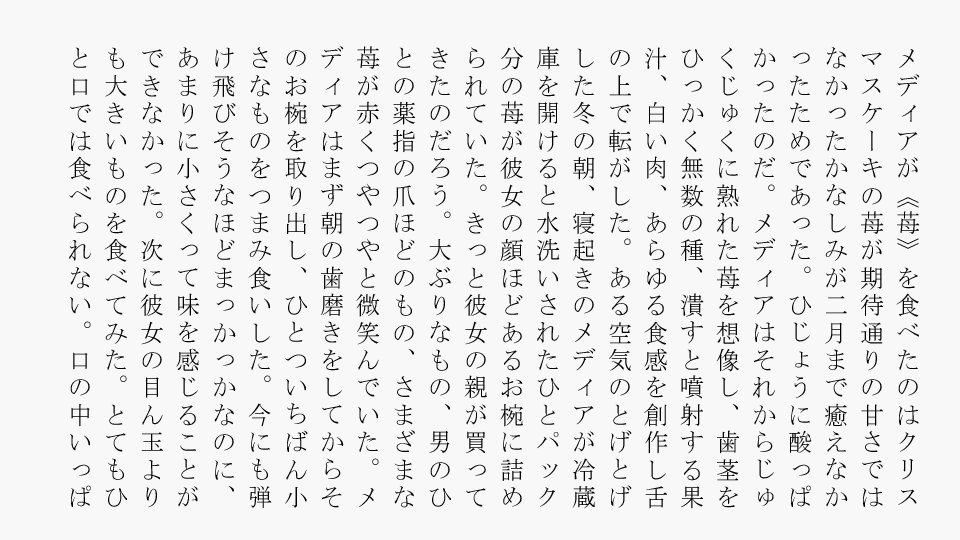 メディアが《苺》を食べたのはクリス
マスケーキの苺が期待通りの甘さでは
なかったかなしみが二月まで癒えなか
ったためであった。ひじょうに酸っぱ
かったのだ。メディアはそれからじゅ
くじゅくに熟れた苺を想像し、歯茎を
ひっかく無数の種、潰すと噴射する果
汁、白い肉、あらゆる食感を創作し舌
の上で転がした。ある空気のとげとげ
した冬の朝、寝起きのメディアが冷蔵
庫を開けると水洗いされたひとパック
分の苺が彼女の顔ほどあるお椀に詰め
られていた。きっと彼女の親が買って
きたのだろう。大ぶりなもの、男のひ
との薬指の爪ほどのもの、さまざまな
苺が赤くつやつやと微笑んでいた。メ
ディアはまず朝の歯磨きをしてからそ
のお椀を取り出し、ひとついちばん小
さなものをつまみ食いした。今にも弾
け飛びそうなほどまっかっかなのに、
あまりに小さくって味を感じることが
できなかった。次に彼女の目ん玉より
も大きいものを食べてみた。とてもひ
と口では食べられない。口の中いっぱ